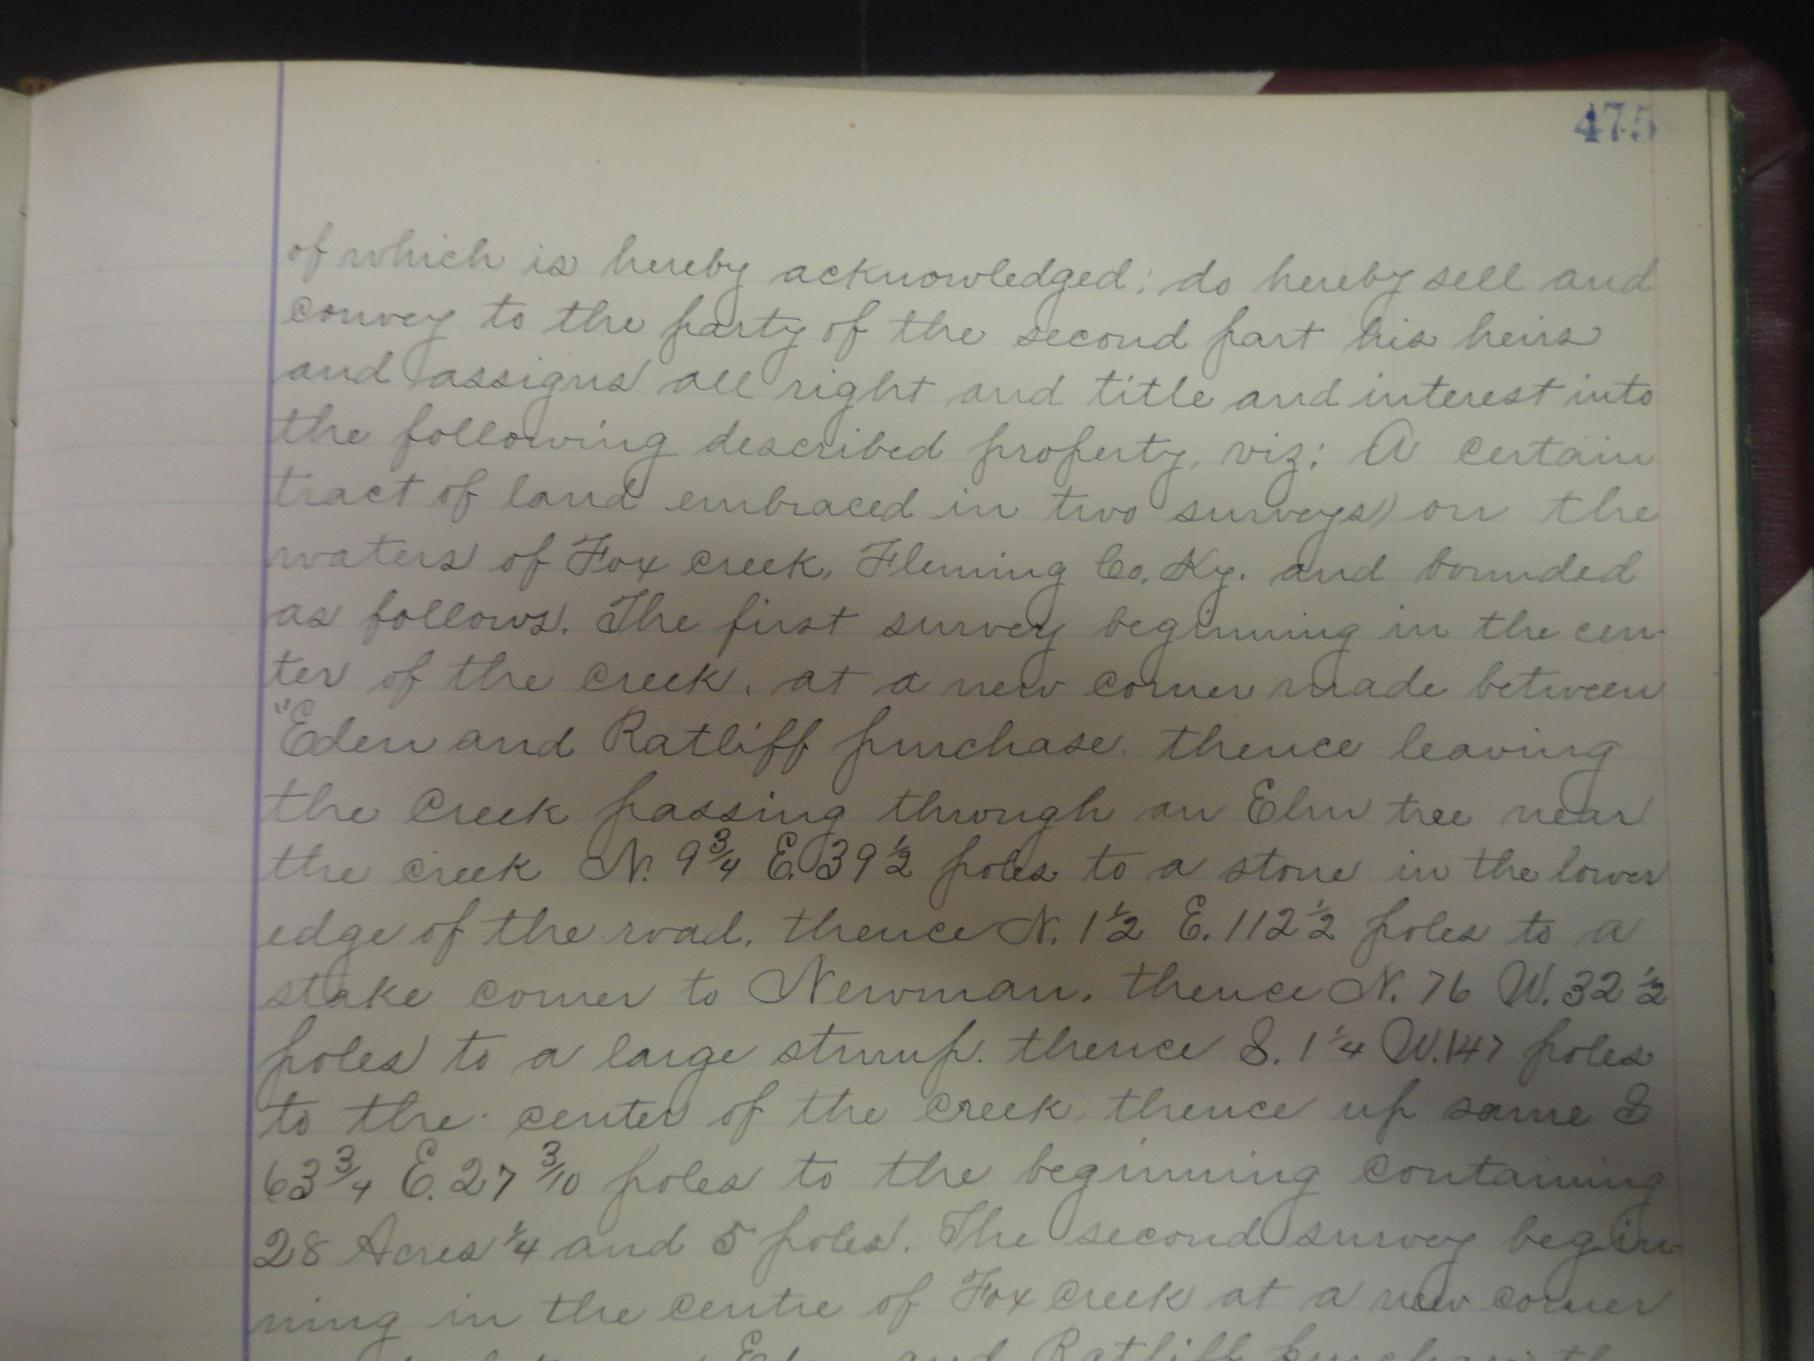 475
of which is hereby acknowledged; do hereby sell and
convey to the party of the second part his heirs
and assigns all right and title and interest into
the following described property, viz; A certain
tract of land embraced in two surveys) on the
waters of Fox creek, Fleming Co, Ky. and bounded
as follows. The first survey beginning in the cen-
ter of the creek, at a new corner made between
"Eden and Ratliff purchase. thence leaving
the Creek passing through an Elm tree near
the creek N. 9 3/4 E. 39 1/2 poles to a stone in the lower
edge of the road, thence N. 1 1/2 E. 112 1/2 poles to a
stake corner to Newman, thence N. 76 W. 32 1/2
poles to a large stump. thence S. 1 1/4 W. 147 poles
to the center of the creek, thence up same S
63 3/4 E. 27 3/10 poles to the beginning containing
28 Acres 1/4 and 5 poles. The second survey begin-
ning in the centre of Fox creek at a new corner
and Ratliff purchase